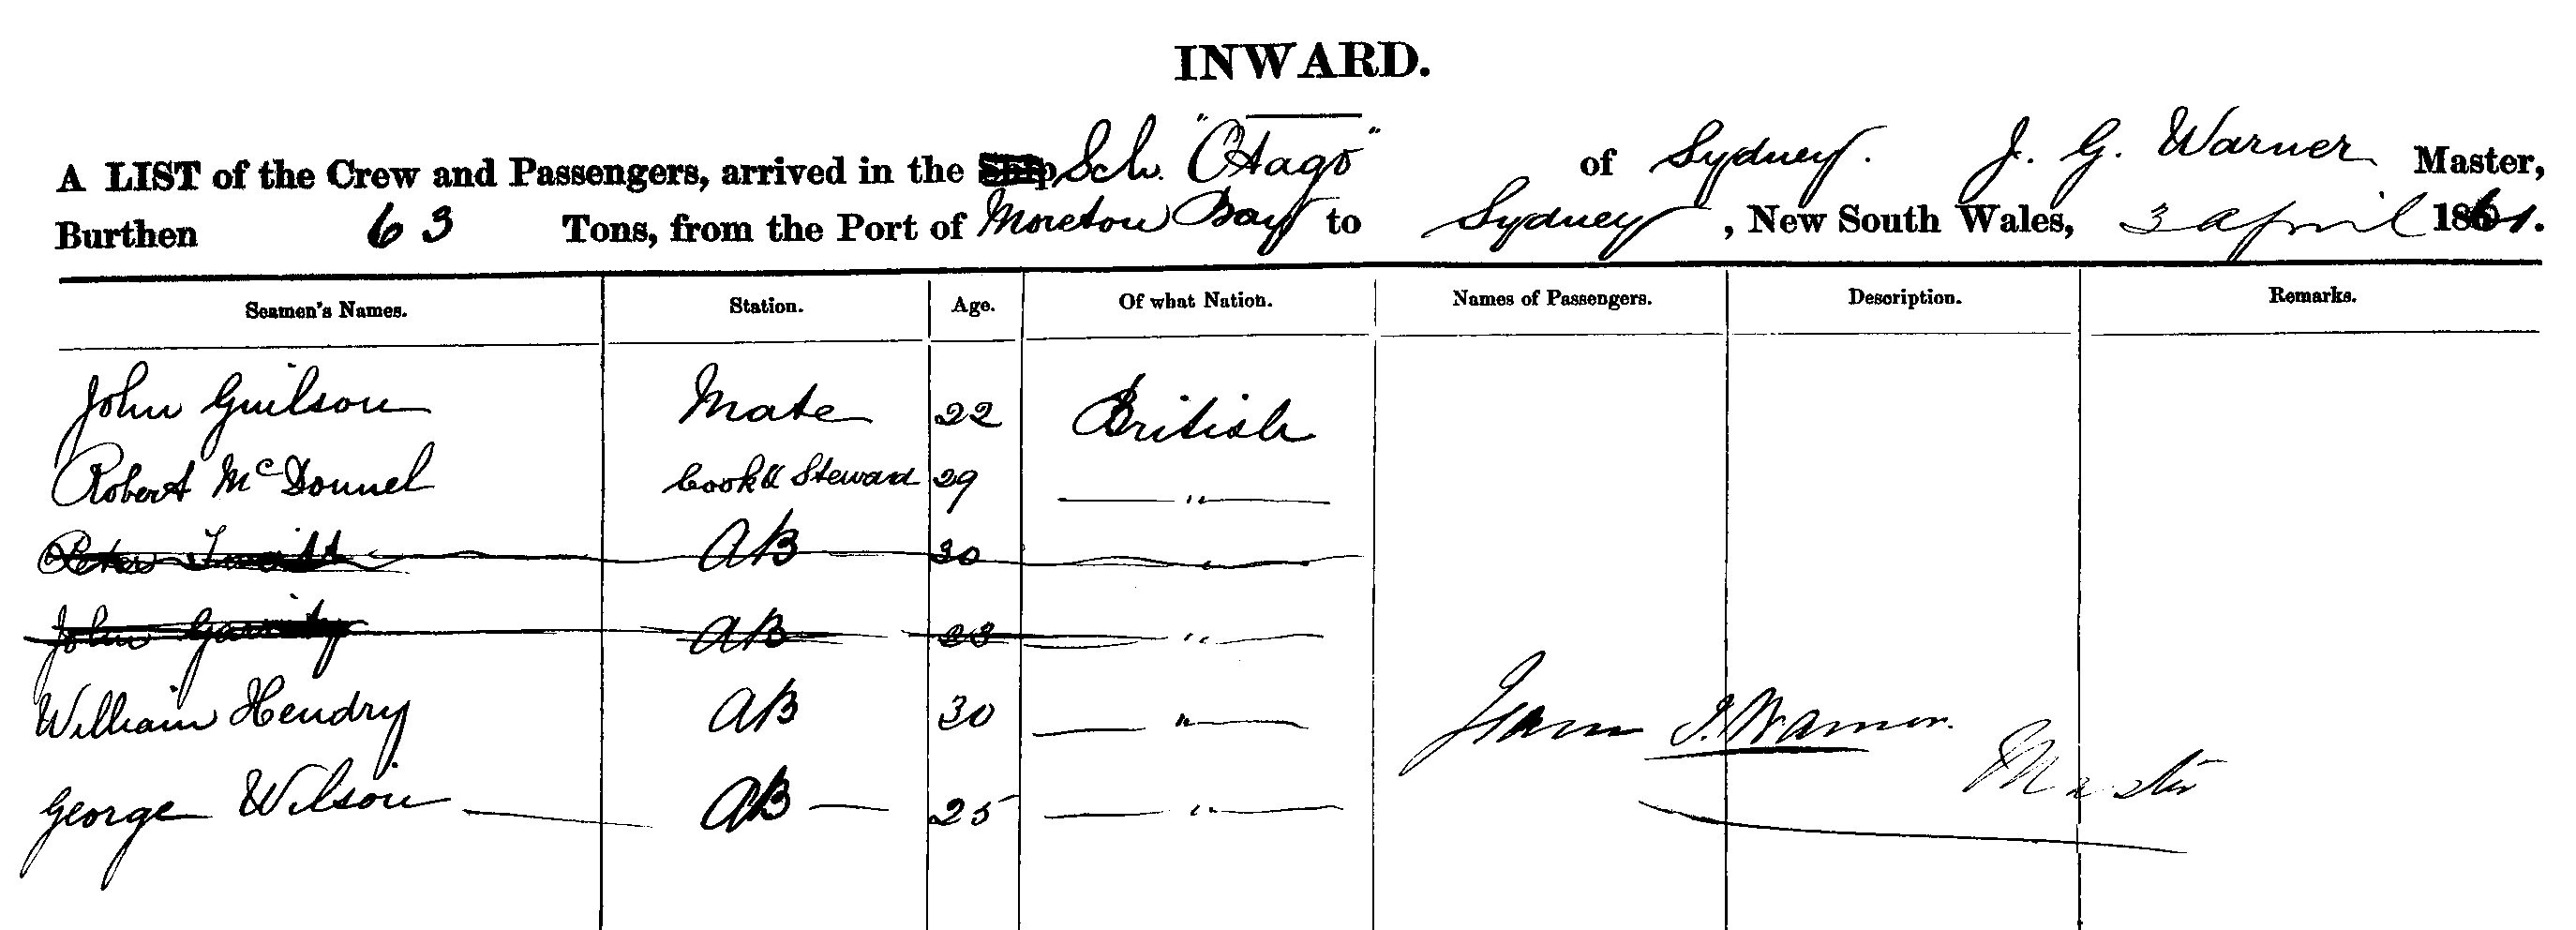 INWARD.
A LIST of the Crew and Passengers, arrived in the Ship Sch. "Otago" of Sydney. J. G. Warner Master,
Burthen 63 Tons, from the Port of Moreton Bay to Sydney, New South Wales, 3 april 1861.
Seamen's Names. Station. Age. Of what Nation. Names of Passengers. Description. Remarks.
John Guilson Mate 22 British
Robert McDonnel Cook & Steward 29 "
Peter AB 30 "
John Garrity AB 23 "
William Hendry AB 30 "
J. Warner.
Master
George Wilson AB 25 "